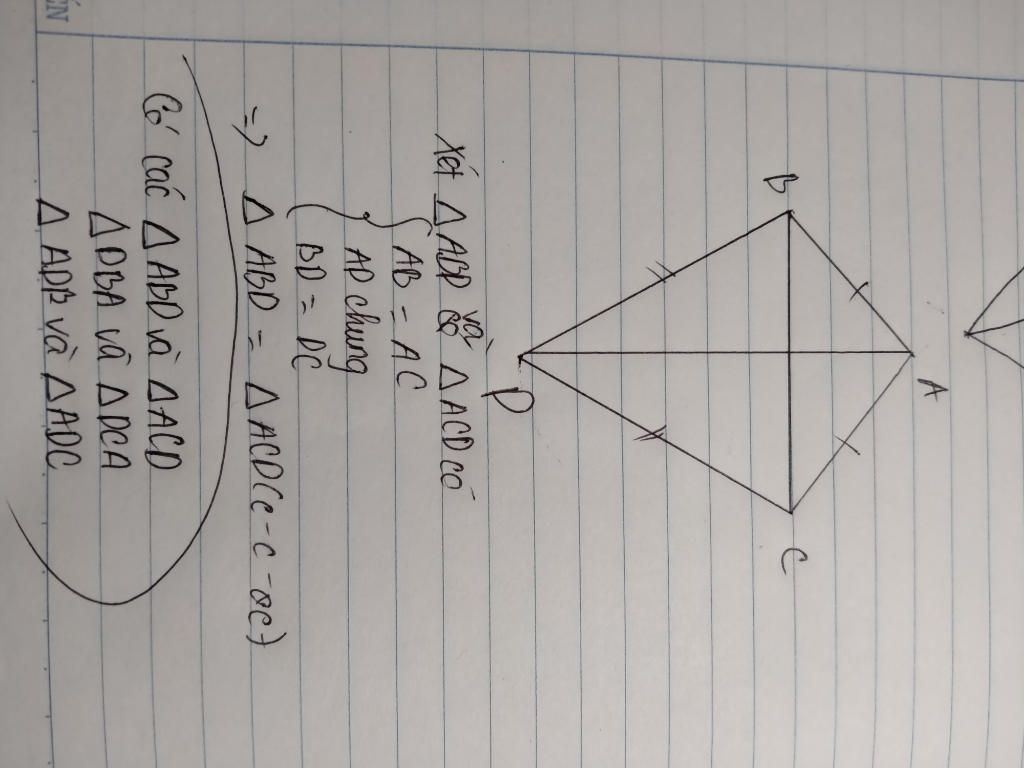 A
B
C
D
Xét Δ ABD và Δ ACD có
AB = AC
AD chung
BD = DC
=> Δ ABD = Δ ACD(c-c-c)
Có các Δ ABD và Δ ACD
Δ DBA và Δ DCA
Δ ADB và Δ ADC